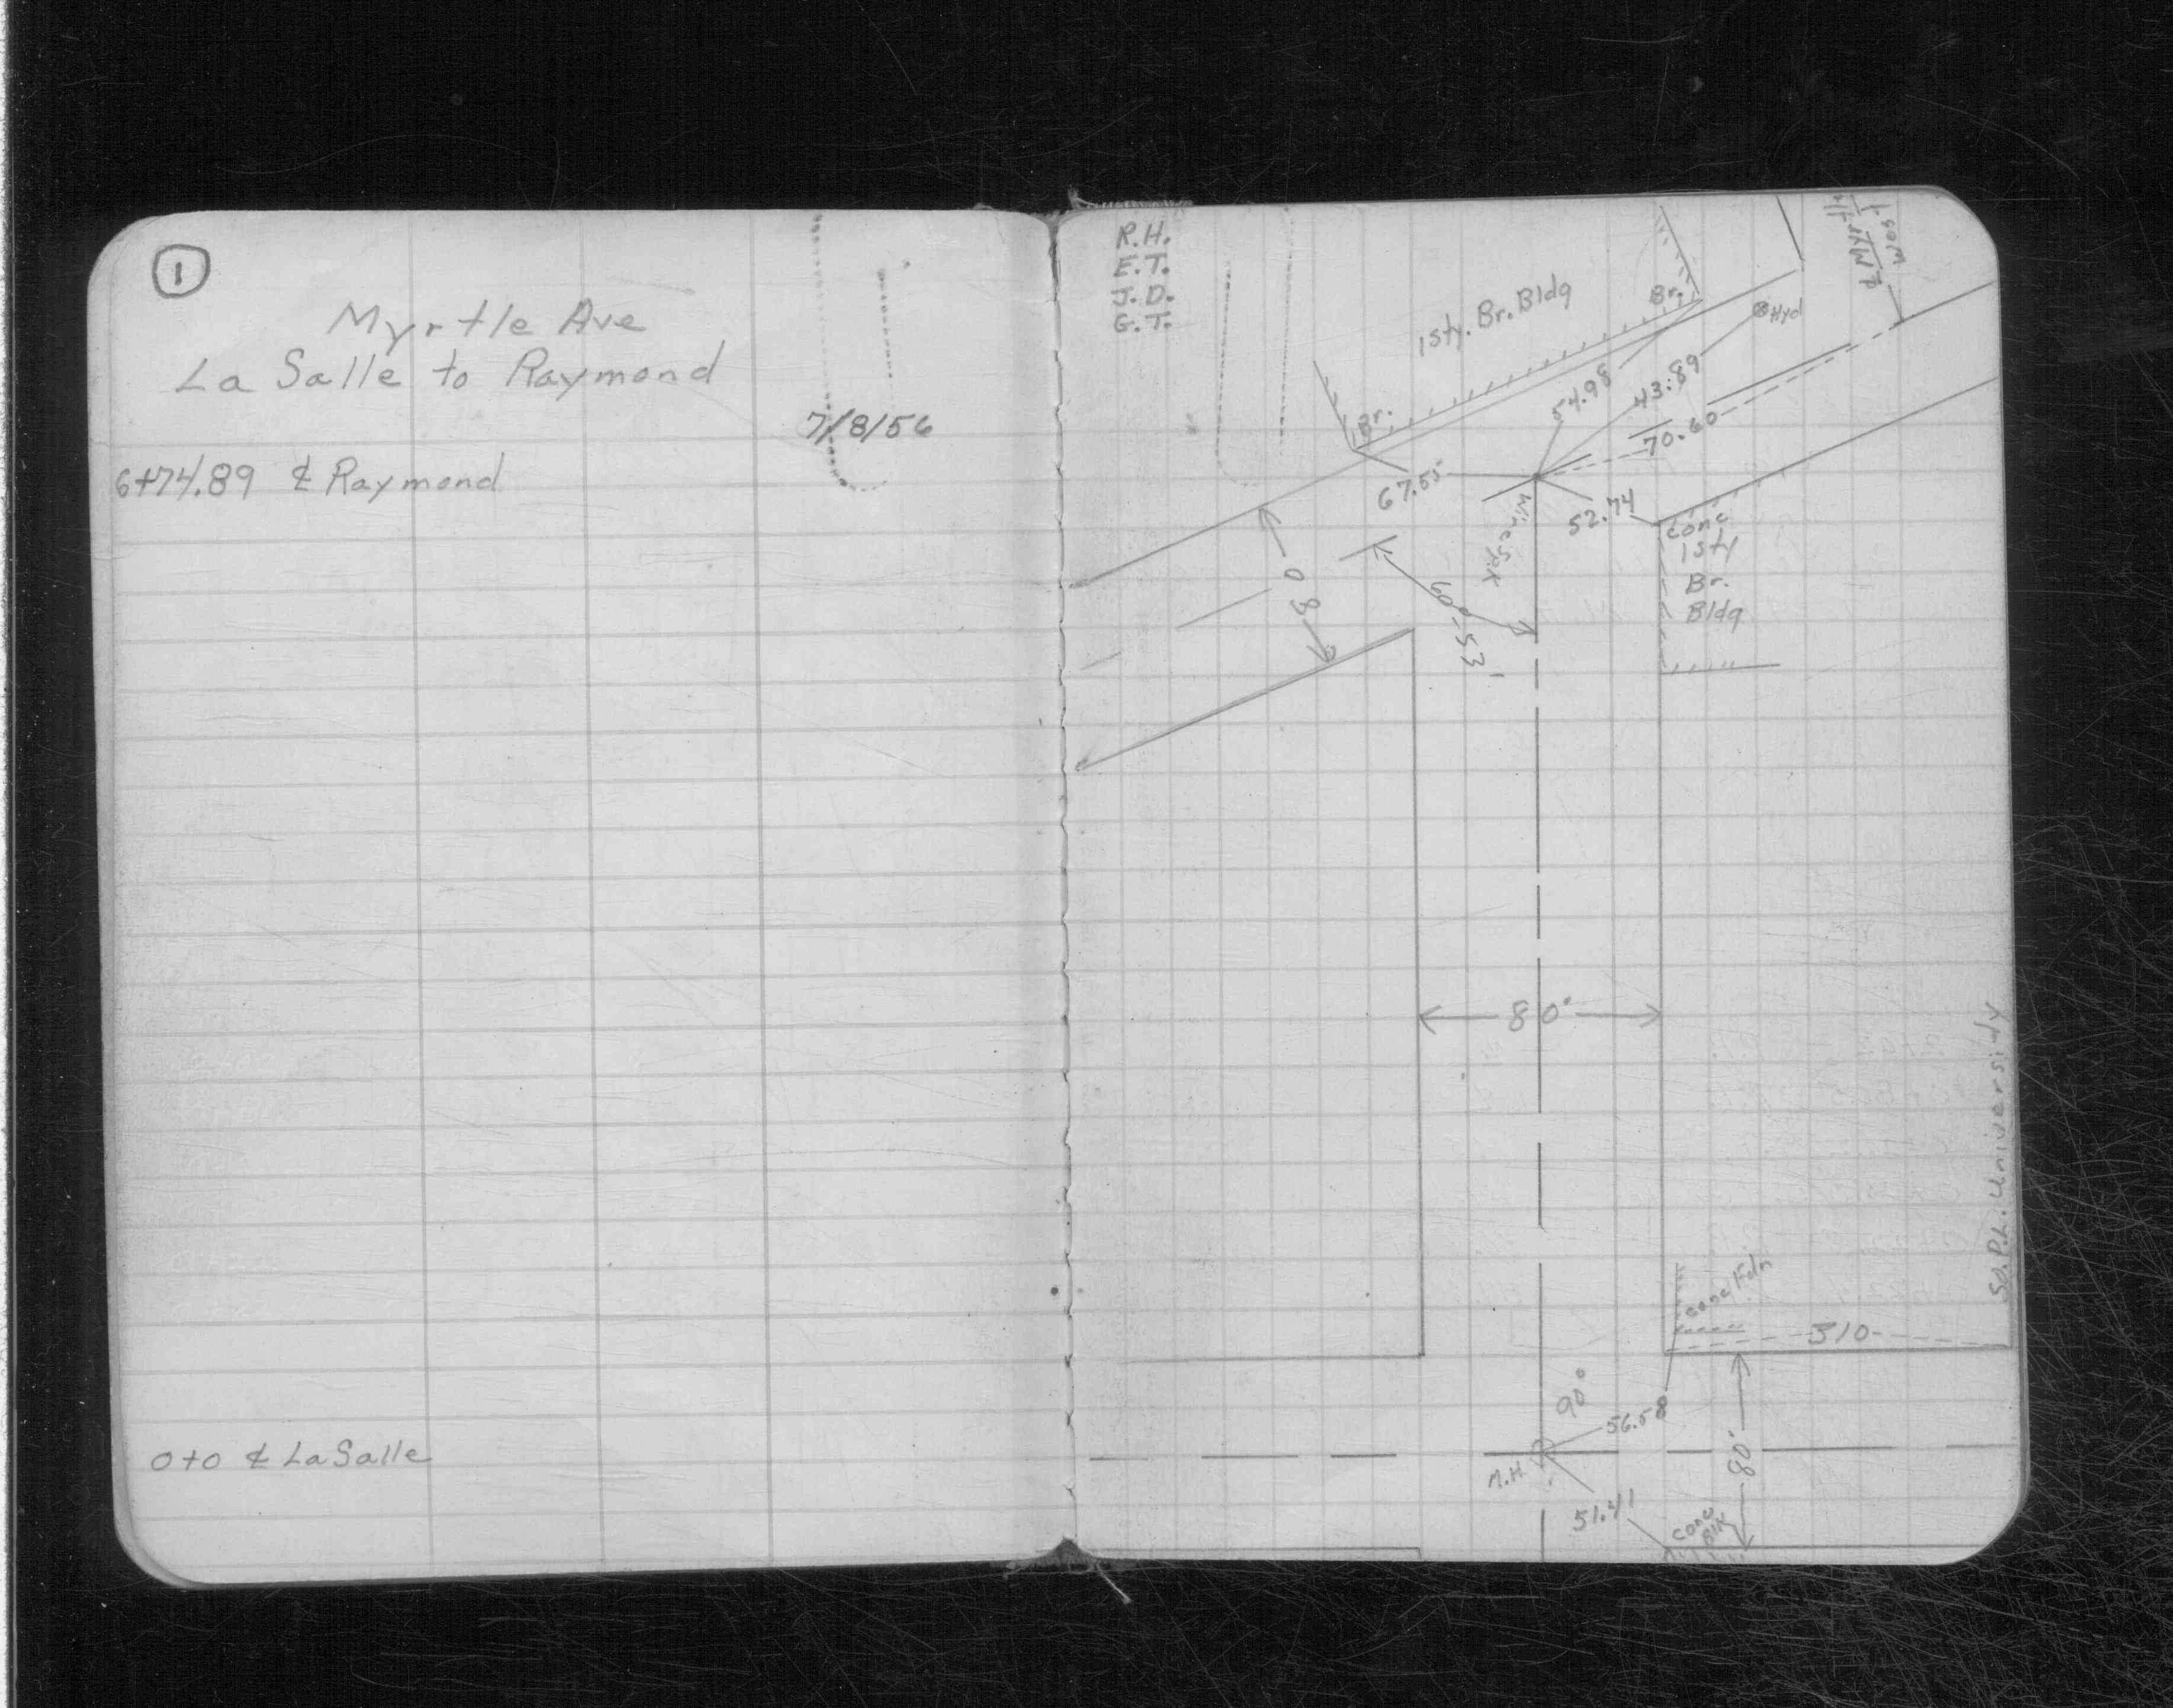 1
Myrtle Ave
La Salle to Raymond
7/8/56
6+74.89 ℄ Raymond
0+0 ℄ LaSalle
R.H.
E.T.
J.D.
G.T.
1sty. Br. Bldg
Br.
Hyd
℄ Myrtle
West
Br.
54.98
43.89
70.60
67.55
52.74
Wire Spk
Conc
1sty
Br.
Bldg
80
60°-53'
80'
So. P.L. University
Conc Fdn
310
90°
56.58
M.H.
80'
51.41
Conc
Blk